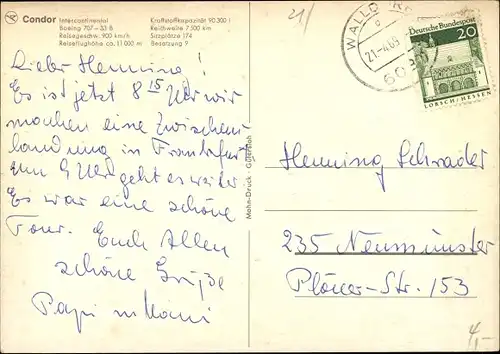 Condor
Intercontinental
Boeing 707-33 B
Reisegeschw. 900 km/h
Reiseflughöhe ca. 11 000 m
Kraftstoffkapazität 90 300 l
Reichweite 7 500 km
Sitzplätze 174
Besatzung 9
Lieber Henning!
Es ist jetzt 8 15 Uhr wir
machen eine Zwischen
landung in Frankfurt
um 9 Uhr geht es weiter
Es war eine schöne
Tour. Euch Allen
schöne Grüße
Papi u. Mami
Mohn-Druck · Gütersloh
21/
WALLDORF
21-4.69
Deutsche Bundespost
20
LORSCH/HESSEN
Henning Schrader
235 Neumünster
Plöner-Str. 153
4,-